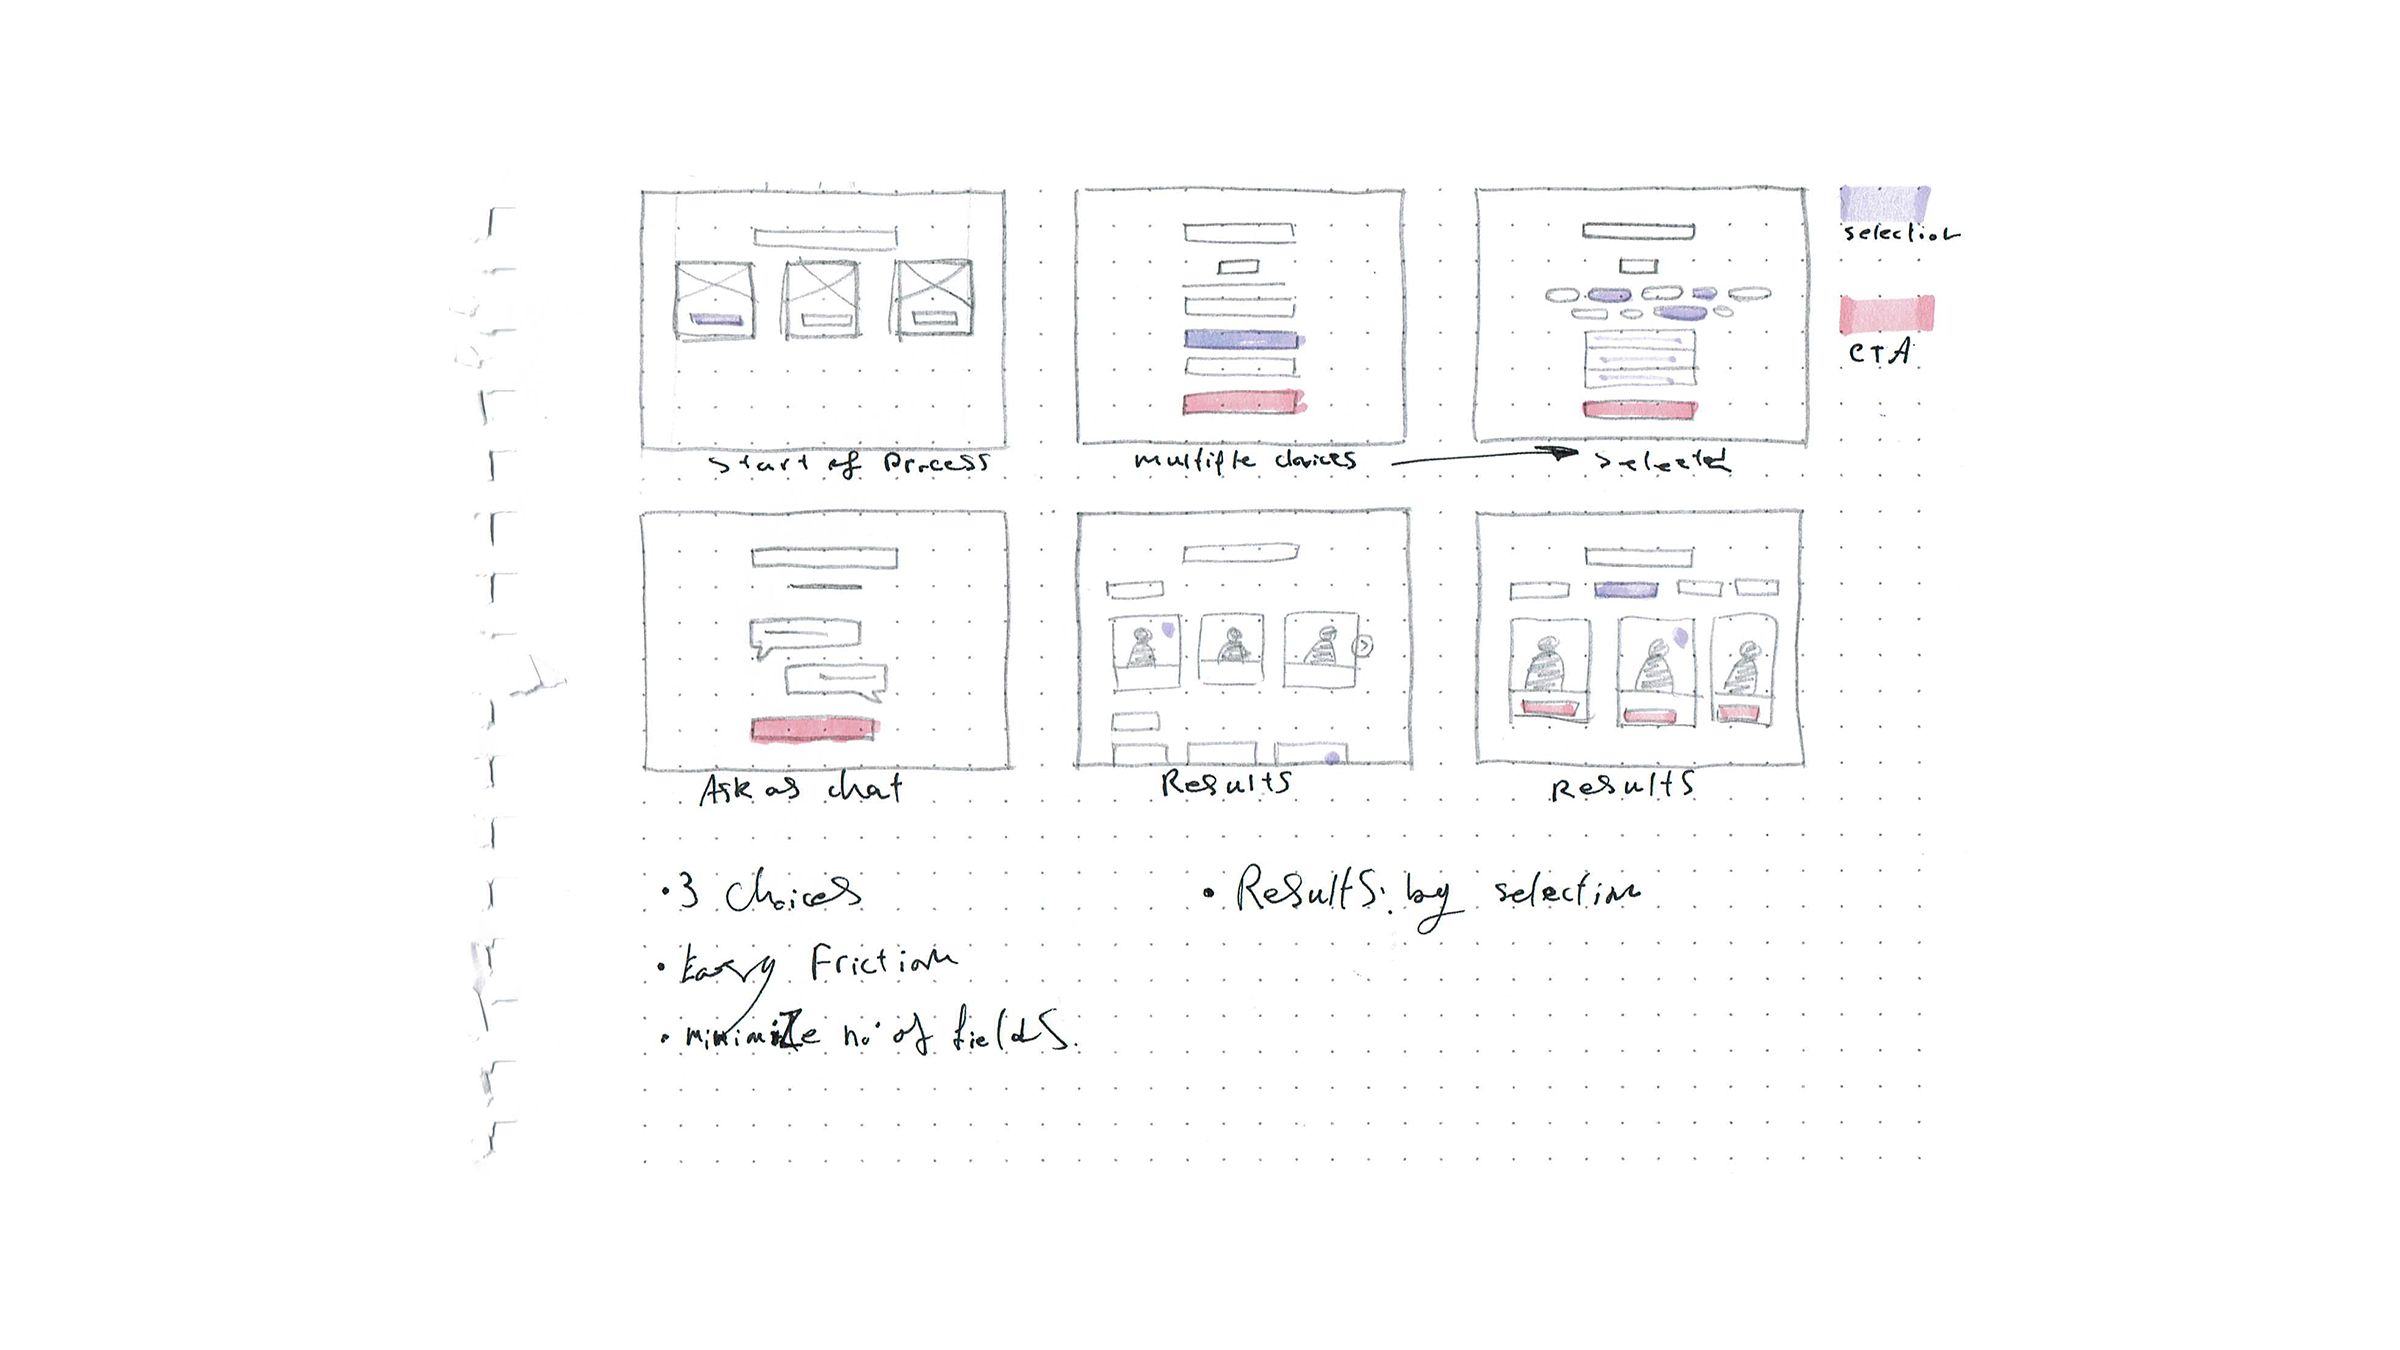 selection
CTA
Start of Process
multiple choices
Selected
Ask as chat
Results
Results
• 3 choices
• Easy Friction
• minimize no. of fields.
• Results by selection